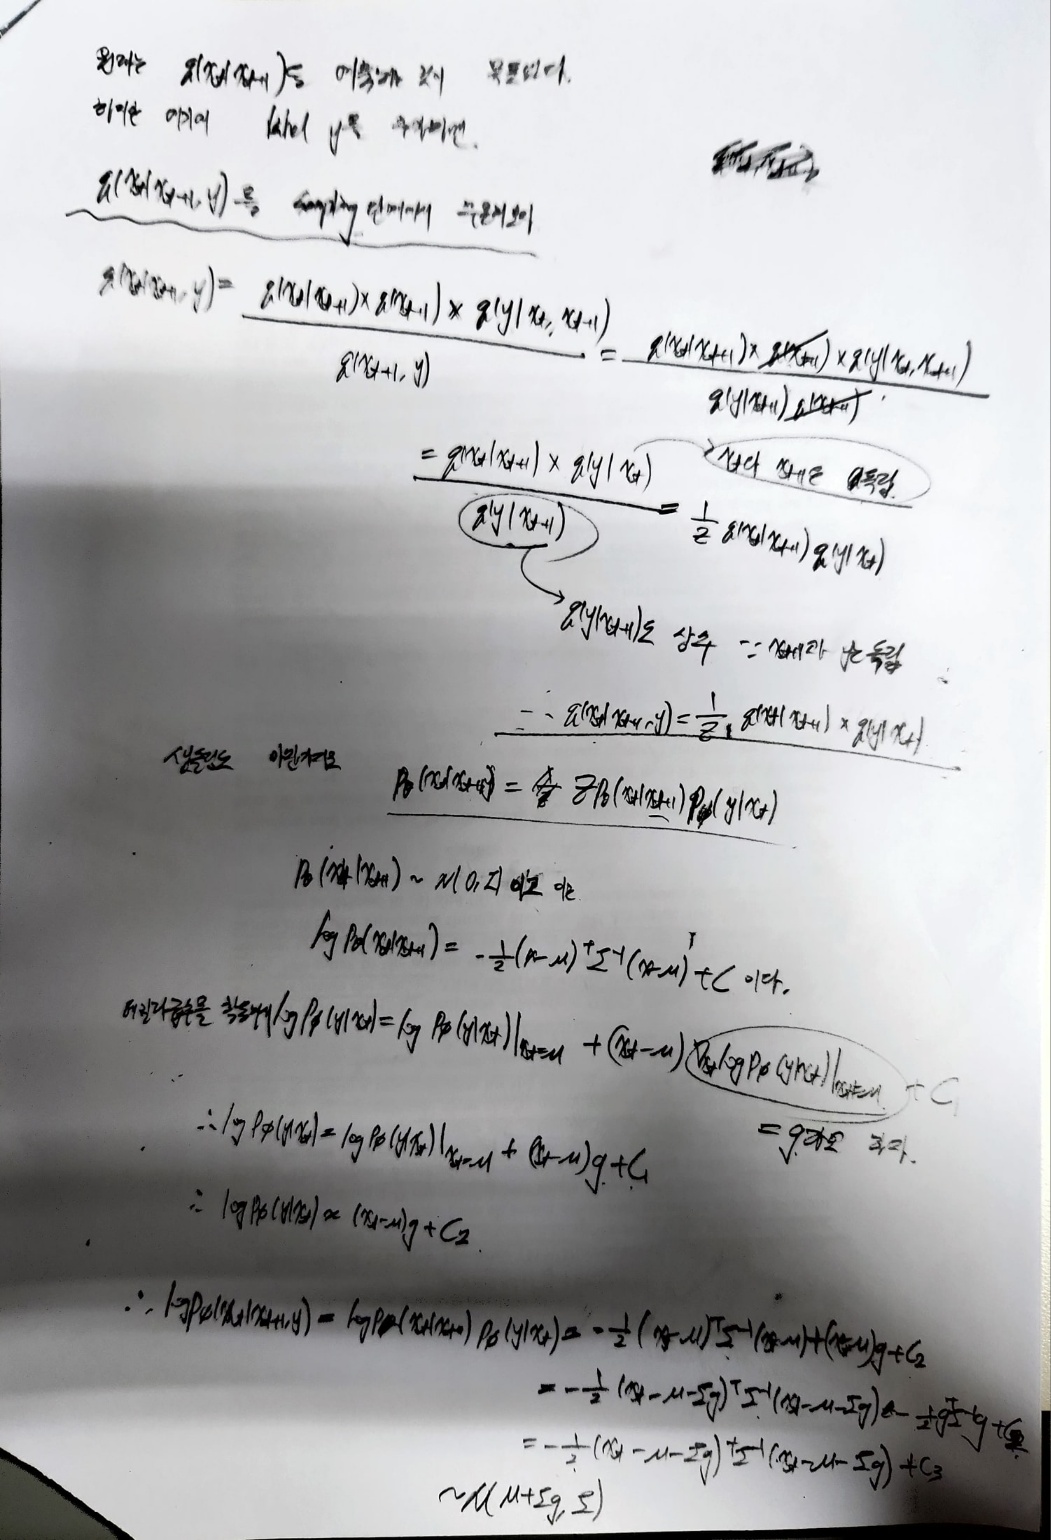 원래는 q(xt|xt+1)을 예측하는 것이 목표였다.
하지만 여기에 label y를 추가하면,
q(xt|xt+1, y)를 sampling 단계에서 추론해보자
q(xt|xt+1, y) = q(xt|xt+1) × q(xt+1) × q(y|xt, xt+1) / q(xt+1, y) = q(xt|xt+1) × q(xt+1) × q(y|xt, xt+1) / q(y|xt+1) q(xt+1)
= q(xt|xt+1) × q(y|xt) / q(y|xt+1) = 1/Z q(xt|xt+1) q(y|xt)
독립
q(y|xt+1)도 상수 ∵ xt+1과 y는 독립
∴ q(xt|xt+1, y) = 1/Z q(xt|xt+1) × q(y|xt)
샘플링도
Pθ(xt|xt+1, y) = Z Pθ(xt|xt+1) Pφ(y|xt)
Pθ(xt|xt+1) ~ N(0, Σ) 이고 이는
log Pθ(xt|xt+1) = -1/2 (xt-μ)^T Σ^-1 (xt-μ) + C 이다.
log Pφ(y|xt) = log Pφ(y|xt)|xt=μ + (xt-μ) ∇xt log Pφ(y|xt)|xt=μ + C1
= g라고 하자.
∴ log Pφ(y|xt) = log Pφ(y|xt)|xt=μ + (xt-μ)g + C1
∴ log Pφ(y|xt) ∝ (xt-μ)g + C2
∴ log Pφ(xt|xt+1, y) = log Pθ(xt|xt+1) Pφ(y|xt) = -1/2 (xt-μ)^T Σ^-1 (xt-μ) + (xt-μ)g + C2
= -1/2 (xt-μ-Σg)^T Σ^-1 (xt-μ-Σg) - 1/2 g^T Σ^-1 g + C2
= -1/2 (xt-μ-Σg)^T Σ^-1 (xt-μ-Σg) + C3
~ N(μ+Σg, Σ)